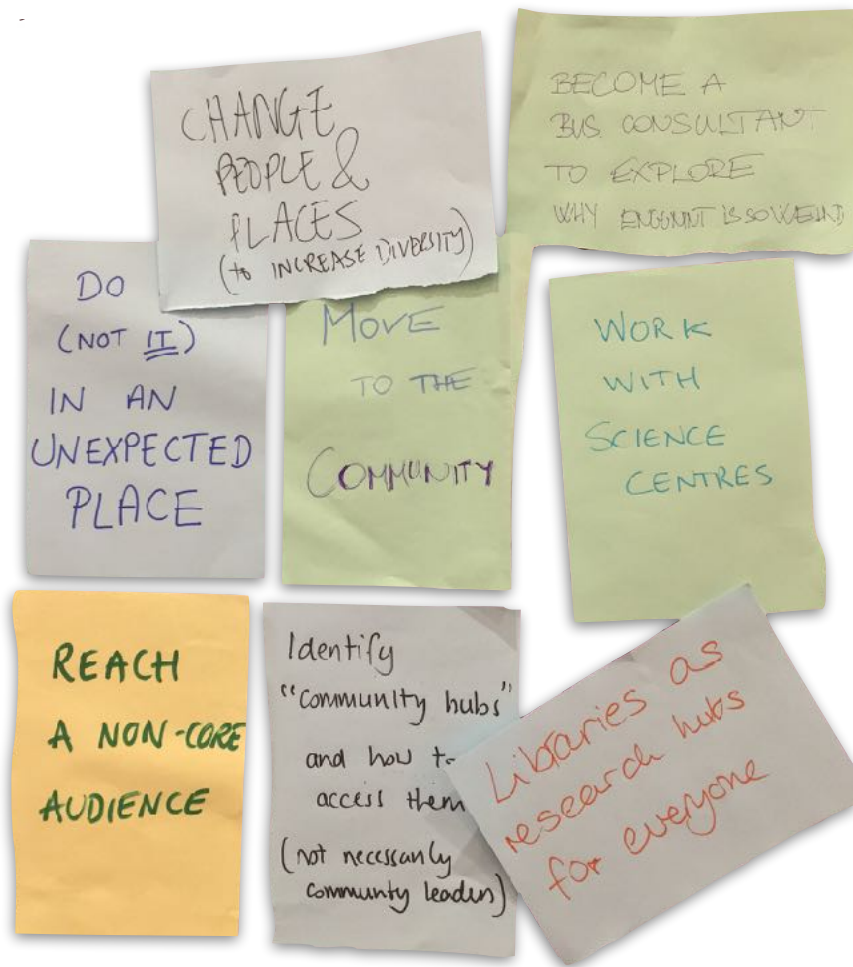 CHANGE
PEOPLE &
PLACES
(to INCREASE DIVERSITY)
BECOME A
BUS. CONSULTANT
TO EXPLORE
WHY IS SO
DO
(NOT IT)
IN AN
UNEXPECTED
PLACE
MOVE
TO THE
COMMUNITY
WORK
WITH
SCIENCE
CENTRES
REACH
A NON-CORE
AUDIENCE
Identify
"community hubs"
and how to
access them
(not necessarily
community leaders)
Libraries as
research hubs
for everyone